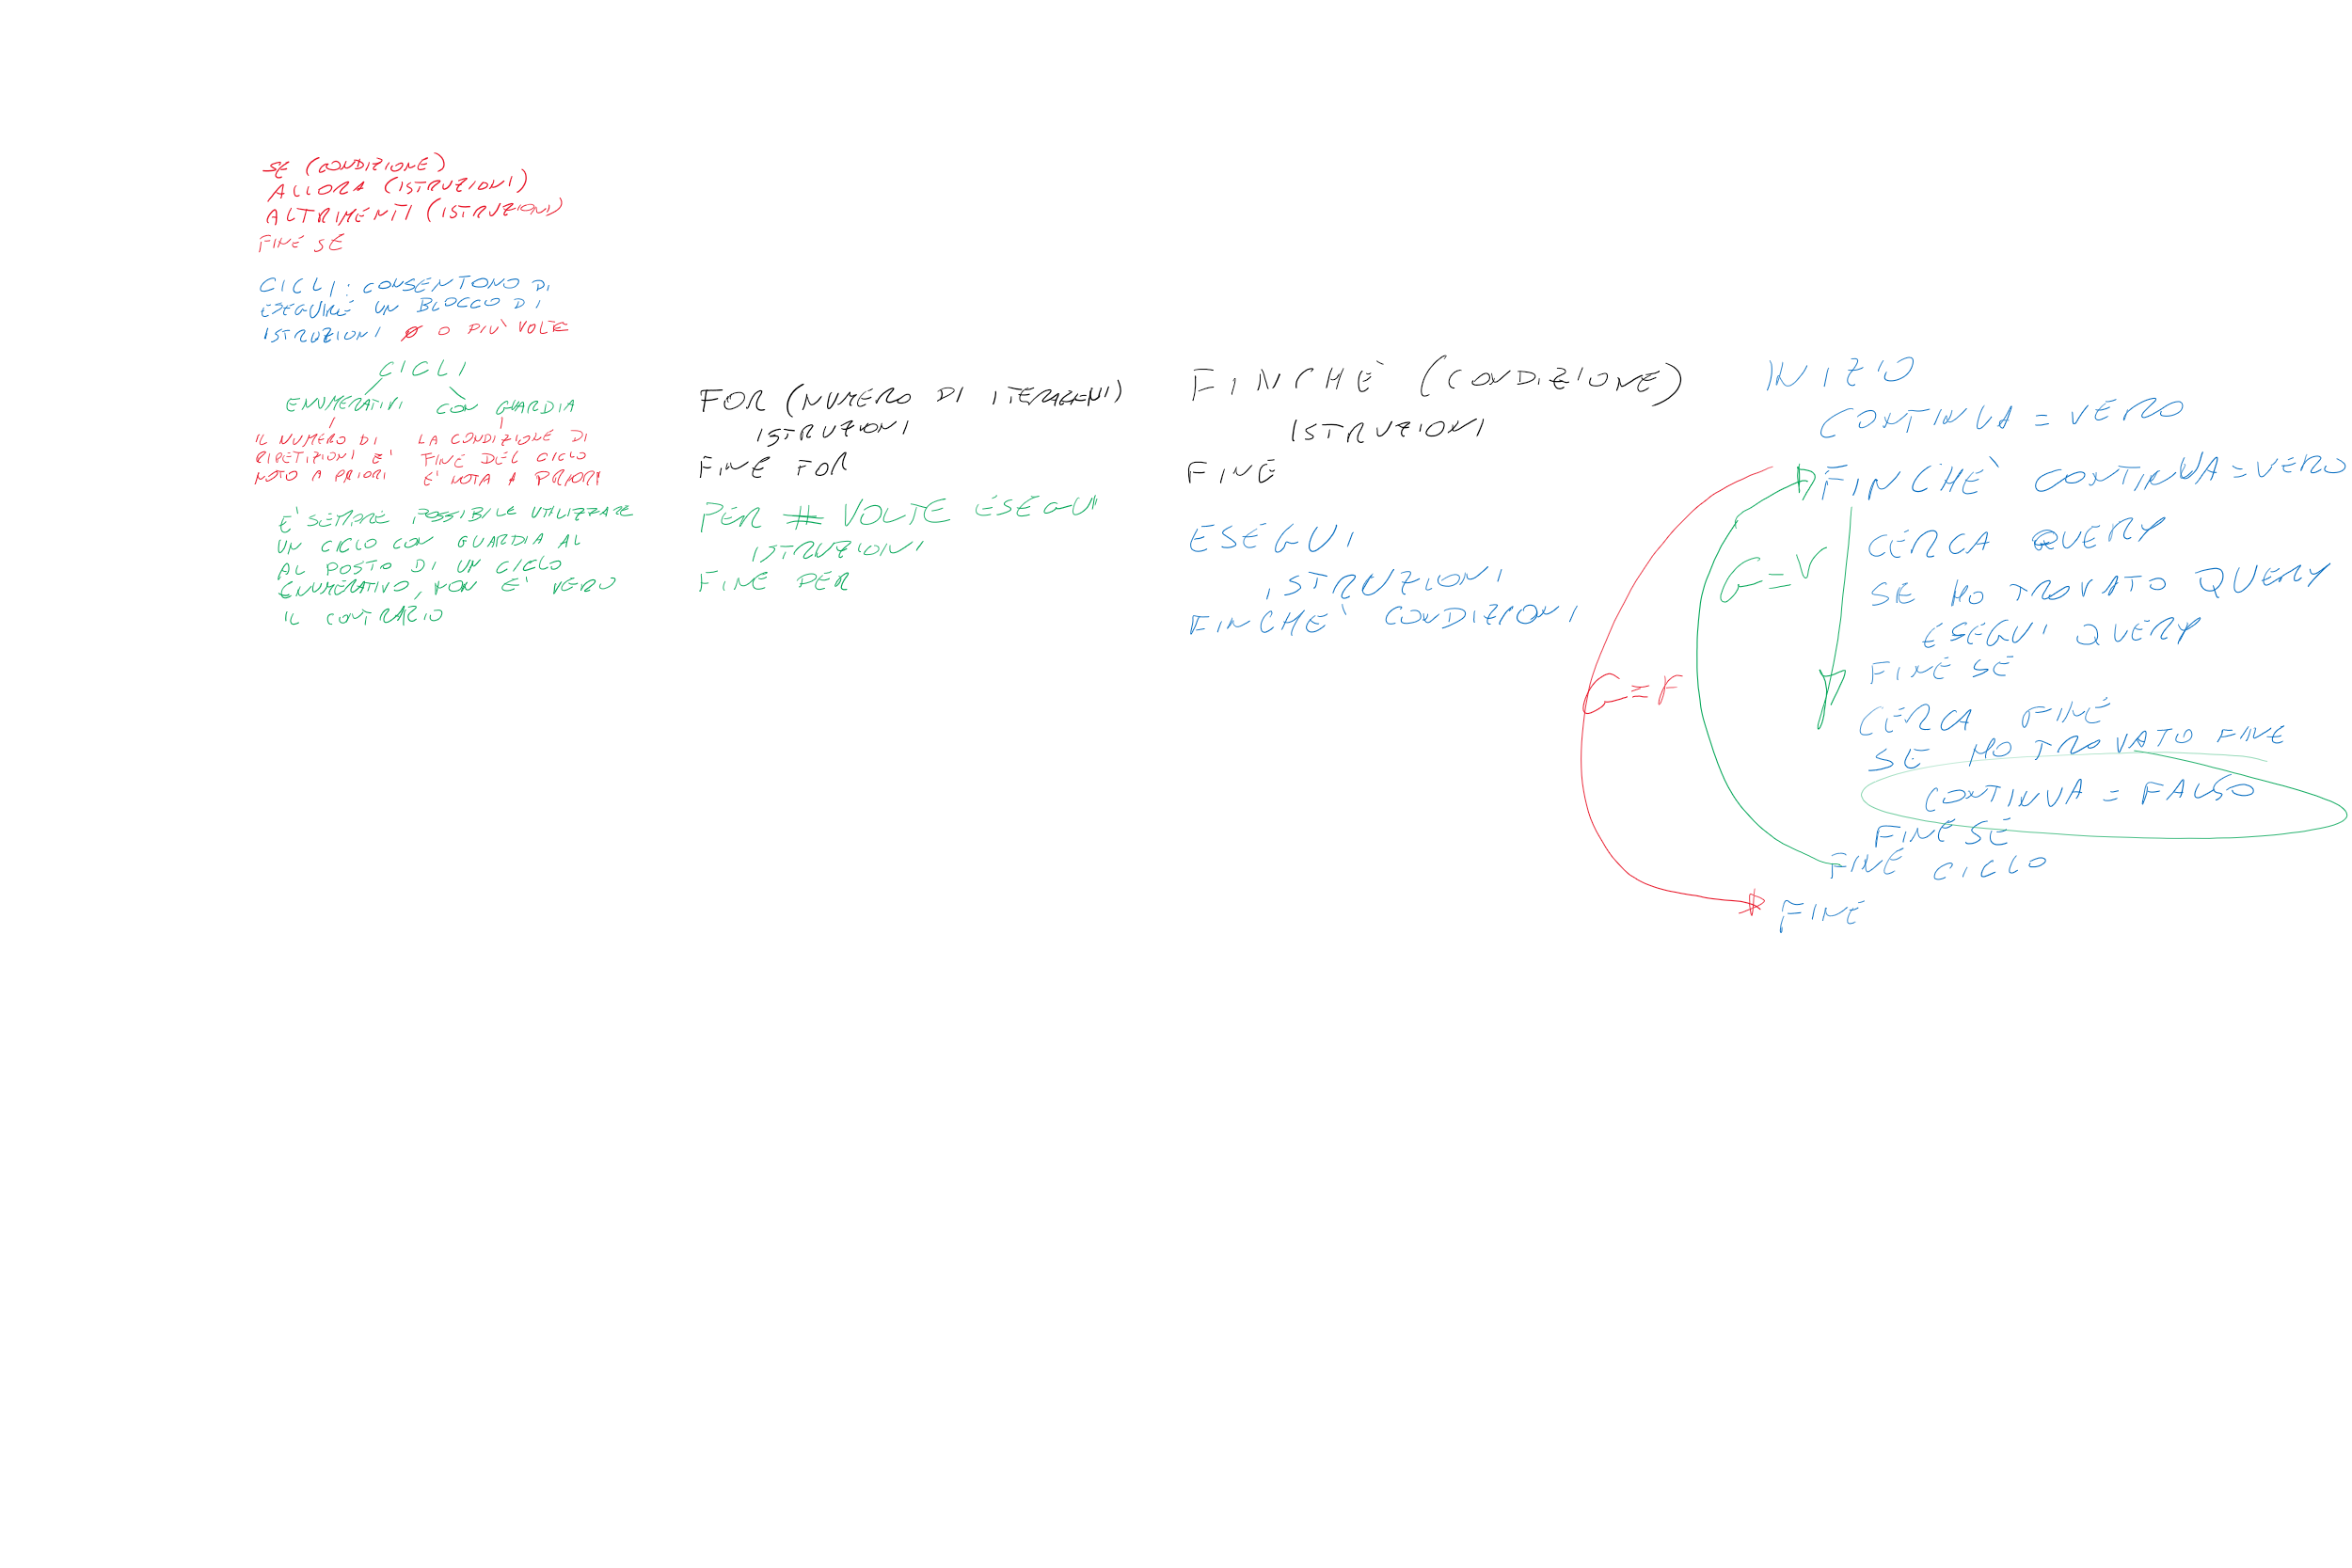 SE (CONDIZIONE)
ALLORA (ISTRUZIONI)
ALTRIMENTI (ISTRUZIONI)
FINE SE
CICLI: CONSENTONO DI
ESEGUIRE UN BLOCCO DI
ISTRUZIONI 0 O PIU' VOLTE
CICLI
ENUMERATIVI CON GUARDIA
IL NUMERO DI
RIPETIZIONI E'
NOTO A PRIORI
LA CONDIZIONE DI
FINE DEL CICLO
E' NOTA A PRIORI
E' SEMPRE POSSIBILE UTILIZZARE
UN CICLO CON GUARDIA AL
AL POSTO DI UN CICLO
ENUMERATIVO, NON E' VERO
IL CONTRARIO
FOR (NUMERO DI ITERAZIONI)
ISTRUZIONI
FINE FOR
PER # VOLTE ESEGUI
ISTRUZIONI
FINE PER
FINCHE' (CONDIZIONE)
ISTRUZIONI
FINE
ESEGUI
ISTRUZIONI
FINCHE' CONDIZIONI
INIZIO
CONTINUA = VERO
FINCHE' CONTINUA = VERO
CERCA QUERY
SE HO TROVATO QUERY
ESEGUI QUERY
FINE SE
CERCA FINE
SE HO TROVATO FINE
CONTINUA = FALSO
FINE SE
FINE CICLO
FINE
C=V
C=F